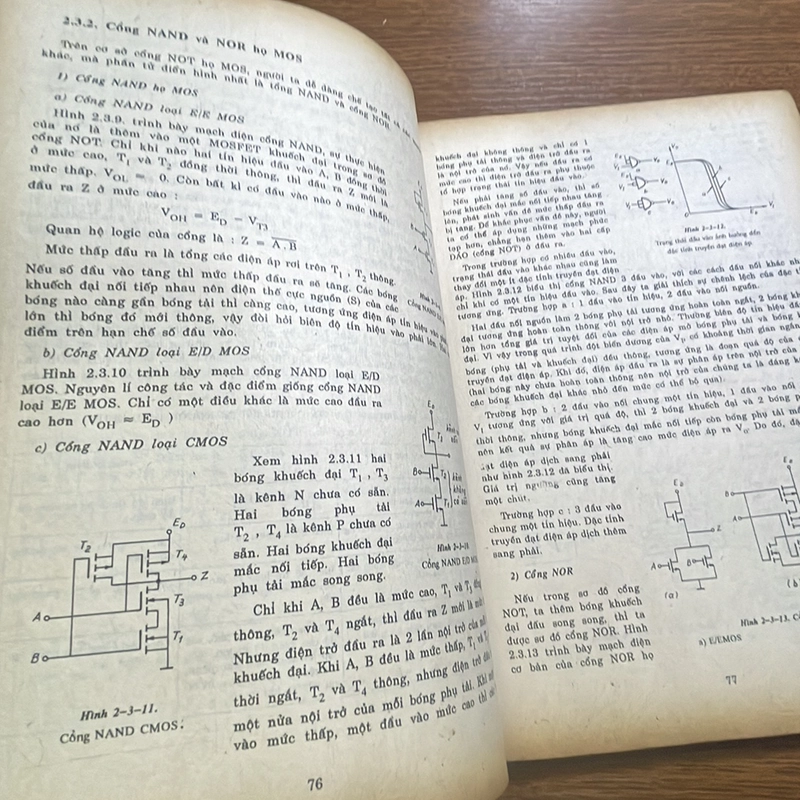 2.3.2. Cổng NAND và NOR họ MOS
Trên cơ sở cổng NOT họ MOS, người ta dễ dàng chế tạo tất cả các
khác, mà phần tử điển hình nhất là tổng NAND và cổng NOR
1) Cổng NAND họ MOS
a) Cổng NAND loại E/E MOS
Hình 2.3.9. trình bày mạch điện cổng NAND, sự thực hiện
của nó là thêm vào một MOSFET khuếch đại trong sơ đồ
cổng NOT. Chỉ khi nào hai tín hiệu đầu vào A, B đồng thời
ở mức cao, T1 và T2 đồng thời thông, thì đầu ra Z mới là
mức thấp. VOL = 0. Còn bất kì có đầu vào nào ở mức thấp,
đầu ra Z ở mức cao :
VOH = ED - VT3
Quan hệ logic của cổng là : Z = A̅.̅B̅
Mức thấp đầu ra là tổng các điện áp rơi trên T1 , T2 thông.
Nếu số đầu vào tăng thì mức thấp đầu ra sẽ tăng. Các bóng
khuếch đại nối tiếp nhau nên điện thế cực nguồn (S) của các
bóng nào càng gần bóng tải thì càng cao, tương ứng điện áp tín hiệu vào phải
lớn thì bóng đó mới thông, vậy đòi hỏi biên độ tín hiệu vào phải lớn.
điểm trên hạn chế số đầu vào.
b) Cổng NAND loại E/D MOS
Hình 2.3.10 trình bày mạch cổng NAND loại E/D
MOS. Nguyên lí công tác và đặc điểm giống cổng NAND
loại E/E MOS. Chỉ có một điều khác là mức cao đầu ra
cao hơn (VOH ≈ ED )
c) Cổng NAND loại CMOS
Xem hình 2.3.11 hai
bóng khuếch đại T1 , T3
là kênh N chưa có sẵn.
Hai bóng phụ tải
T2 , T4 là kênh P chưa có
sẵn. Hai bóng khuếch đại
mắc nối tiếp. Hai bóng
phụ tải mắc song song.
Chỉ khi A, B đều là mức cao, T1 và T3
thông, T2 và T4 ngắt, thì đầu ra Z mới là mức
Nhưng điện trở đầu ra là 2 lần nội trở của
khuếch đại. Khi A, B đều là mức thấp, T1 và
thời ngắt, T2 và T4 thông, nhưng điện trở đầu
một nửa nội trở của mỗi bóng phụ tải. Khi
vào mức thấp, một đầu vào mức cao thì
ED
T2
T4
Z
T3
A
T1
B
Hình 2-3-11.
Cổng NAND CMOS.
B
A
T1
Cổng NAND E/D
76
khuếch đại không thông và chỉ có 1
bóng phụ tải thông và điện trở đầu ra
là nội trở của nó. Vậy nếu đầu ra có
mức cao thì điện trở đầu ra phụ thuộc
tổ hợp trạng thái tín hiệu đầu vào.
Nếu phải tăng số đầu vào, thì số
bóng khuếch đại mắc nối tiếp nhau tăng
lên, phát sinh vấn đề mức thấp đầu ra
bị tăng. Để khắc phục vấn đề này, người
ta có thể áp dụng những mạch phức
tạp hơn, chẳng hạn thêm vào hai cấp
ĐẢO (cổng NOT) ở đầu ra.
Hình 2-3-12.
Trạng thái đầu vào ảnh hưởng đến
đặc tính truyền đạt điện áp.
Trong trường hợp có nhiều đầu vào,
trạng thái đầu vào khác nhau cũng làm
thay đổi một ít đặc tính truyền đạt điện
áp. Hình 2.3.12 biểu thị cổng NAND 3 đầu vào, với các cách đấu nối khác
chỉ khi có một tín hiệu đầu vào. Sau đây ta giải thích sự chênh lệch của đặc
tương ứng. Trường hợp a : 1 đầu vào tín hiệu, 2 đầu vào nối nguồn.
Hai đầu nối nguồn làm 2 bóng phụ tải tương ứng hoàn toàn ngắt, 2 bóng
đại tương ứng hoàn toàn thông với nội trở nhỏ. Thường biên độ tín hiệu
lớn hơn tổng giá trị tuyệt đối của các điện áp mở bóng phụ tải và bóng
đại. Vì vậy trong quá trình đột biến dương của VP có khoảng thời gian ngắn
bóng (phụ tải và khuếch đại) đều thông, tương ứng là đoạn quá độ của
truyền đạt điện áp. Khi đó, điện áp đầu ra là sự phân áp trên nội trở của
(hai bóng này chưa hoàn toàn thông nên nội trở của chúng ta là đáng
các bóng khuếch đại khác nhỏ đến mức có thể bỏ qua).
Trường hợp b : 2 đầu vào nối chung một tín hiệu, 1 đầu vào nối
V1 tương ứng với giá trị quá độ, thì 2 bóng khuếch đại và 2 bóng
thời thông, nhưng bóng khuếch đại mắc nối tiếp còn bóng phụ tải
nên kết quả sự phân áp là tăng cao mức điện áp ra V0. Do đó,
đạt điện áp dịch sang phải
như hình 2.3.12 đã biểu thị.
Giá trị ngưỡng cũng tăng
một chút.
Trường hợp c : 3 đầu vào
chung một tín hiệu. Đặc tính
truyền đạt điện áp dịch thêm
sang phải.
2) Cổng NOR
Nếu trong sơ đồ cổng
NOT, ta thêm bóng khuếch
đại đấu song song, thì ta
được sơ đồ cổng NOR. Hình
2.3.13 trình bày mạch điện
cơ bản của cổng NOR họ
Z
A
B
(a)
B
A
(b
Hình 2-3-13.
a) E/EMOS
77